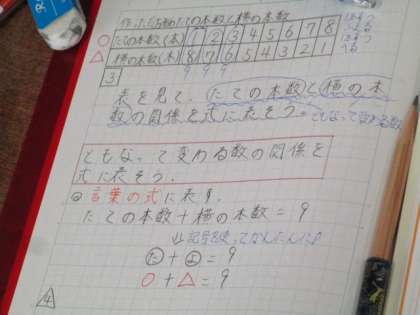 作った図形のたての本数と横の本数
○ たての本数(本) 1 2 3 4 5 6 7 8
△ 横の本数(本) 8 7 6 5 4 3 2 1
9 9 9
3
表を見て、たての本数と横の本
数の関係を式に表そう。ともなって変わる数
ともなって変わる数の関係を
式に表そう。
言葉の式に表す。
たての本数+横の本数=9
⇓記号を使ってかんたんに♪
た+よ=9
○+△=9
4